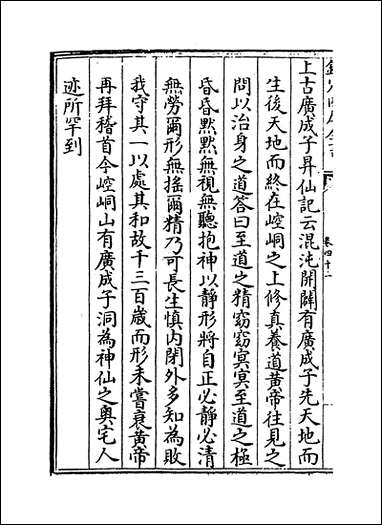 欽定四庫全書
卷四十二
上古廣成子昇仙記云混沌開闢有廣成子先天地而
生後天地而終在崆峒之上修真養道黄帝往見之
問以治身之道答曰至道之精窈窈冥冥至道之極
昏昏黙黙無視無聽抱神以静形將自正必静必清
無勞爾形無揺爾精乃可長生慎内閉外多知為敗
我守其一以處其和故千三百歳而形未嘗衰黄帝
再拜稽首今崆峒山有廣成子洞為神仙之奥宅人
迹所罕到